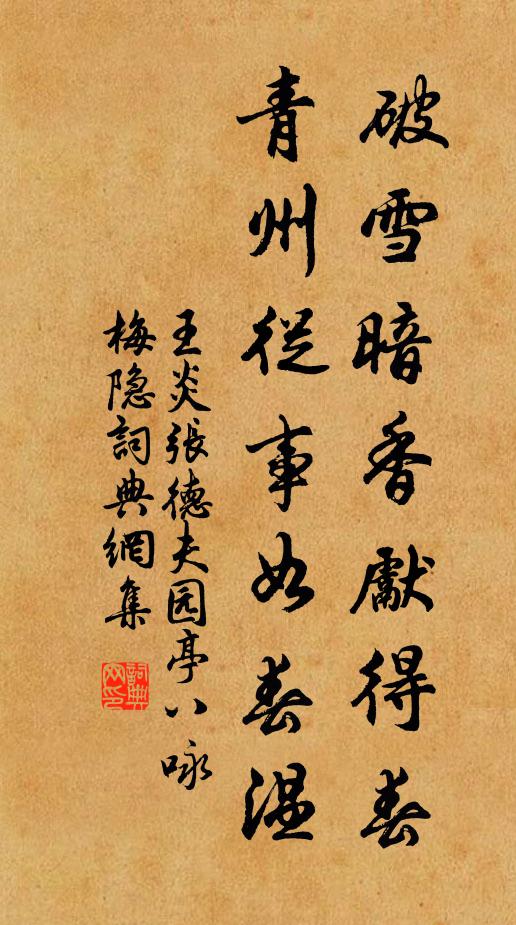 破雪暗香獻得春
青州從事如春溫
王炎張德夫园亭八咏
梅隐詞典網集
詞典网印